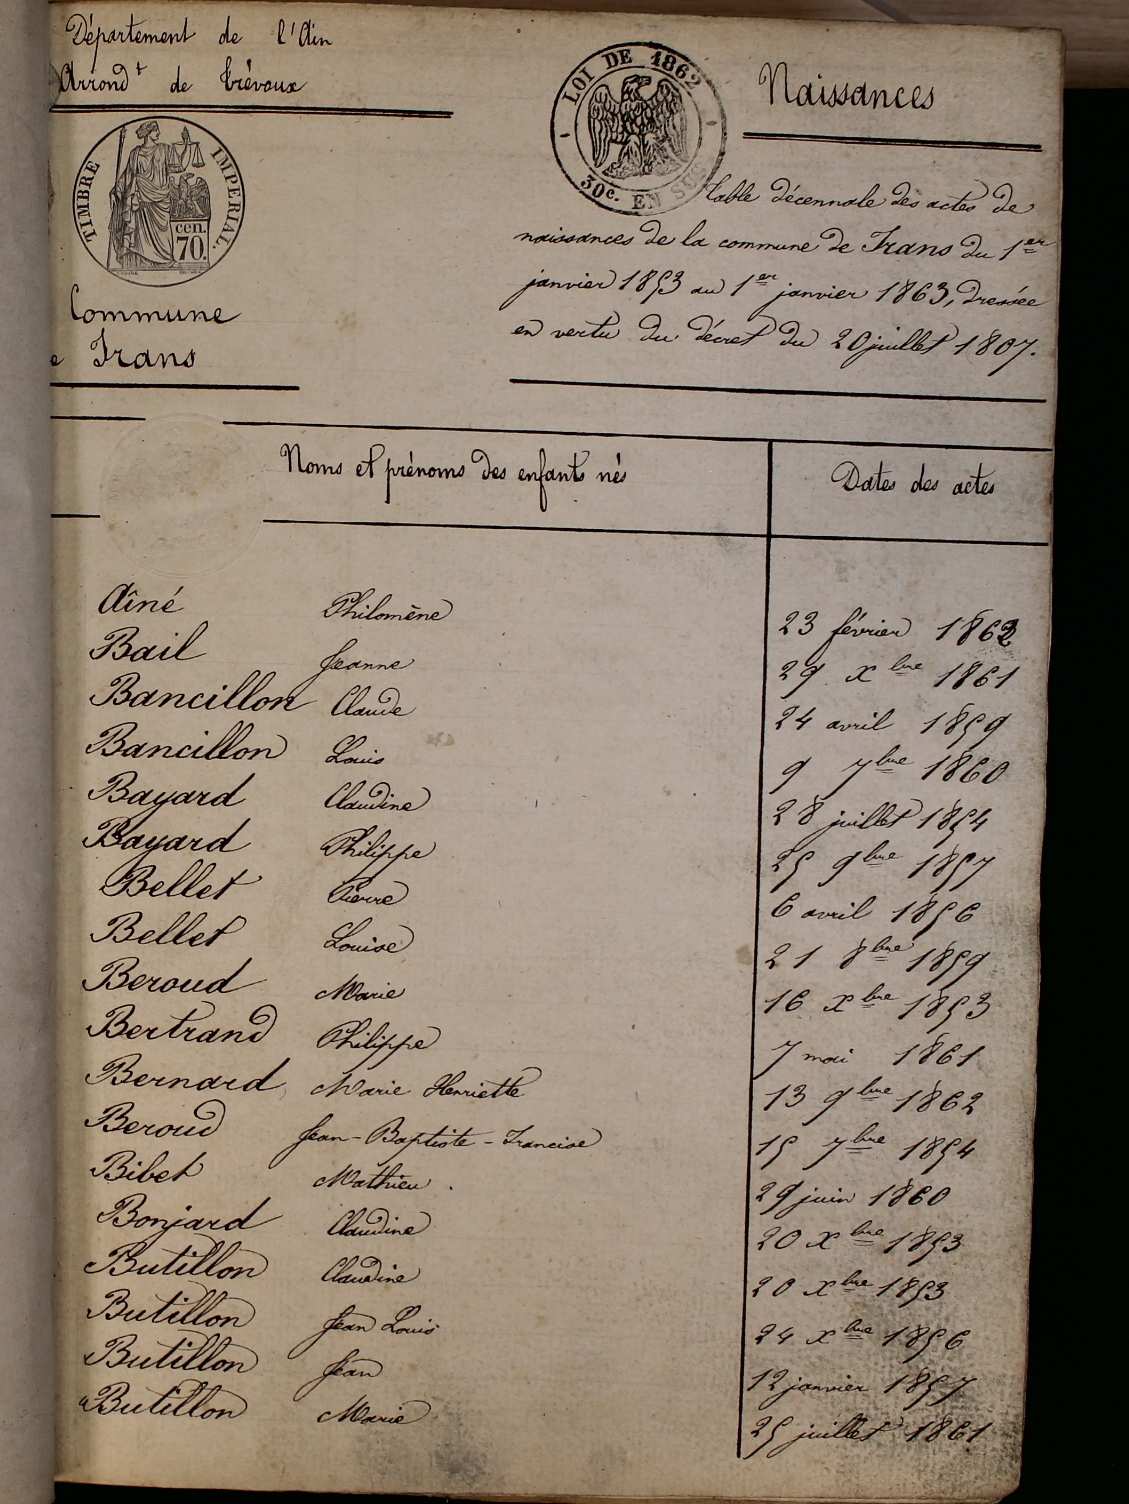 Département de l'Ain
Arrond.t de Trévoux
TIMBRE IMPERIAL.
cen.
70.
Commune
Trans
LOI DE 1862
30c. EN SUS
Naissances
Table décennale des actes de
naissances de la commune de Trans du 1er
janvier 1853 au 1er janvier 1863, dressée
en vertu du décret du 20 juillet 1807.
Noms et prénoms des enfants nés Dates des actes
Aîné Philomène 23 février 1862
Bail Jeanne 29 xbre 1861
Bancillon Claude 24 avril 1859
Bancillon Louis 9 7bre 1860
Bayard Claudine 28 juillet 1854
Bayard Philippe 25 9bre 1857
Bellet Pierre 6 avril 1856
Bellet Louise 21 8bre 1859
Beroud Marie 16 xbre 1853
Bertrand Philippe 7 mai 1861
Bernard Marie Henriette 13 9bre 1862
Beroud Jean-Baptiste-Francise 15 7bre 1854
Bibet Mathieu. 29 juin 1860
Bonjard Claudine 20 xbre 1853
Butillon Claudine 20 xbre 1853
Butillon Jean Louis 24 xbre 1856
Butillon Jean 12 janvier 1857
Butillon Marie 25 juillet 1861